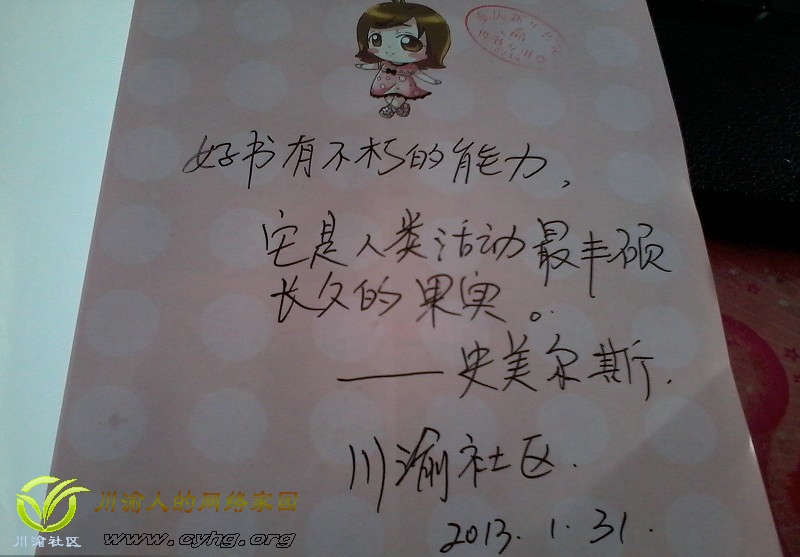 好书有不朽的能力，
它是人类活动最丰硕
长久的果实。
——史美尔斯.
川渝社区.
2013.1.31.
川渝人的网络家园
川渝社区 www.cyhg.org